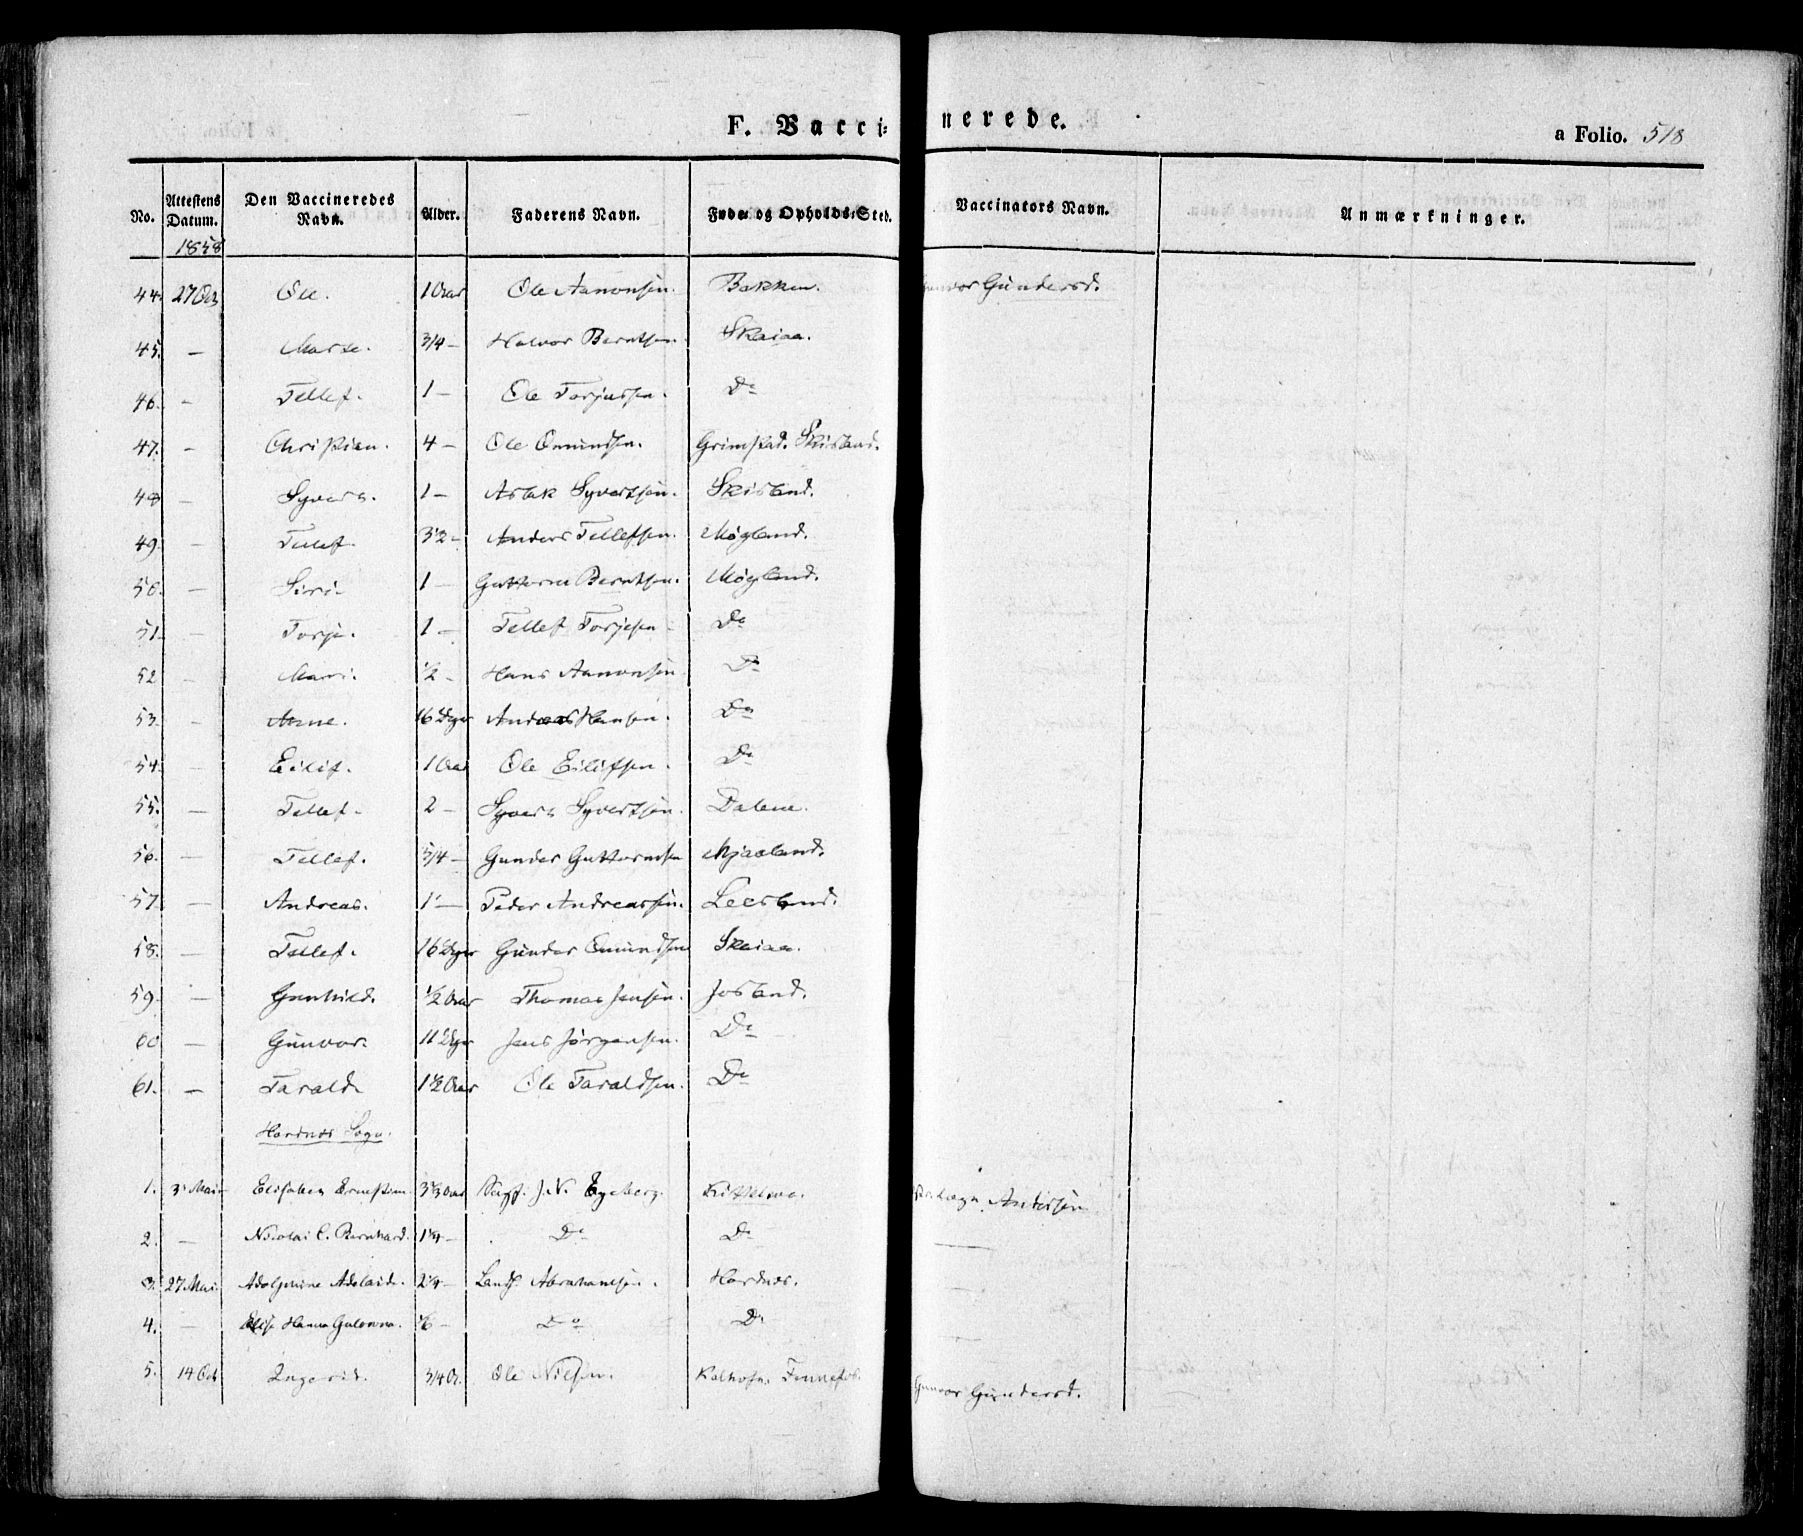 F. Vaccinerede.
a Folio. 518
No. Attestens Datum. Den Vaccineredes Navn. Alder. Faderens Navn. Føde- og Opholds-Sted. Vaccinators Navn. Anmærkninger.
1858
44. 27 Oct Ole. 1 Aar Ole Aanonsen. Bakken. Gunvor Gundersd.
45. — 3/4 — Halvor Berntsen. Skaiaa.
46. - Tellef. 1 — Ole Torjussen. Do
47. - Christian. 4 — Ole Omundsen. Grimstad. Skisland.
48 - Syvert. 1 — Aslak Syvertsen. Skisland.
49. - Tellef. 3 1/2 - Anders Tellefsen. Møgland.
50. — Siri. 1 — Guttorm Berntsen. Møgland.
51. — Torje. 1 — Tellef Torjesen Do
52 — Mari. 1/2 - Hans Aanonsen Do
53. - Anne. 16 Uger Andreas Hansen. Do
54. - Eilif. 1 Aar Ole Eilifsen. Do
55. — Tellef. 2 — Syvert Syvertsen. Dalene.
56. — Tellef. 3/4 — Gunder Guttormsen Mjaaland.
57 — Andreas. 1 — Peder Andreassen. Leesland.
58. — Tellef. 16 Uger Gunder Omundsen Skaiaa.
59. — Gunhild. 1/2 Aar Thomas Jensen. Josland.
60 — Gunvor. 11 Uger Jens Jørgensen. Do
61. — Tarald. 1 1/2 Aar Ole Taraldsen. Do
Hornnes Sogn.
1. 3 Mai Elisabeth Ernestine 3 1/3 Aar J. N. Egeberg. Andersen
2. — Nicolai C. Bernhard. 1 1/4 — Do Do —
3. 27 Mai. Adolphine Adelaide. 2 1/4 — Abrahamsen. Hornnes. —
4. — Elise Hanna Gulowna. 1/6 — Do Do —
5. 14 Oct Ingerid. 3/4 A. Ole Nilsen. Gunvor Gundersd.